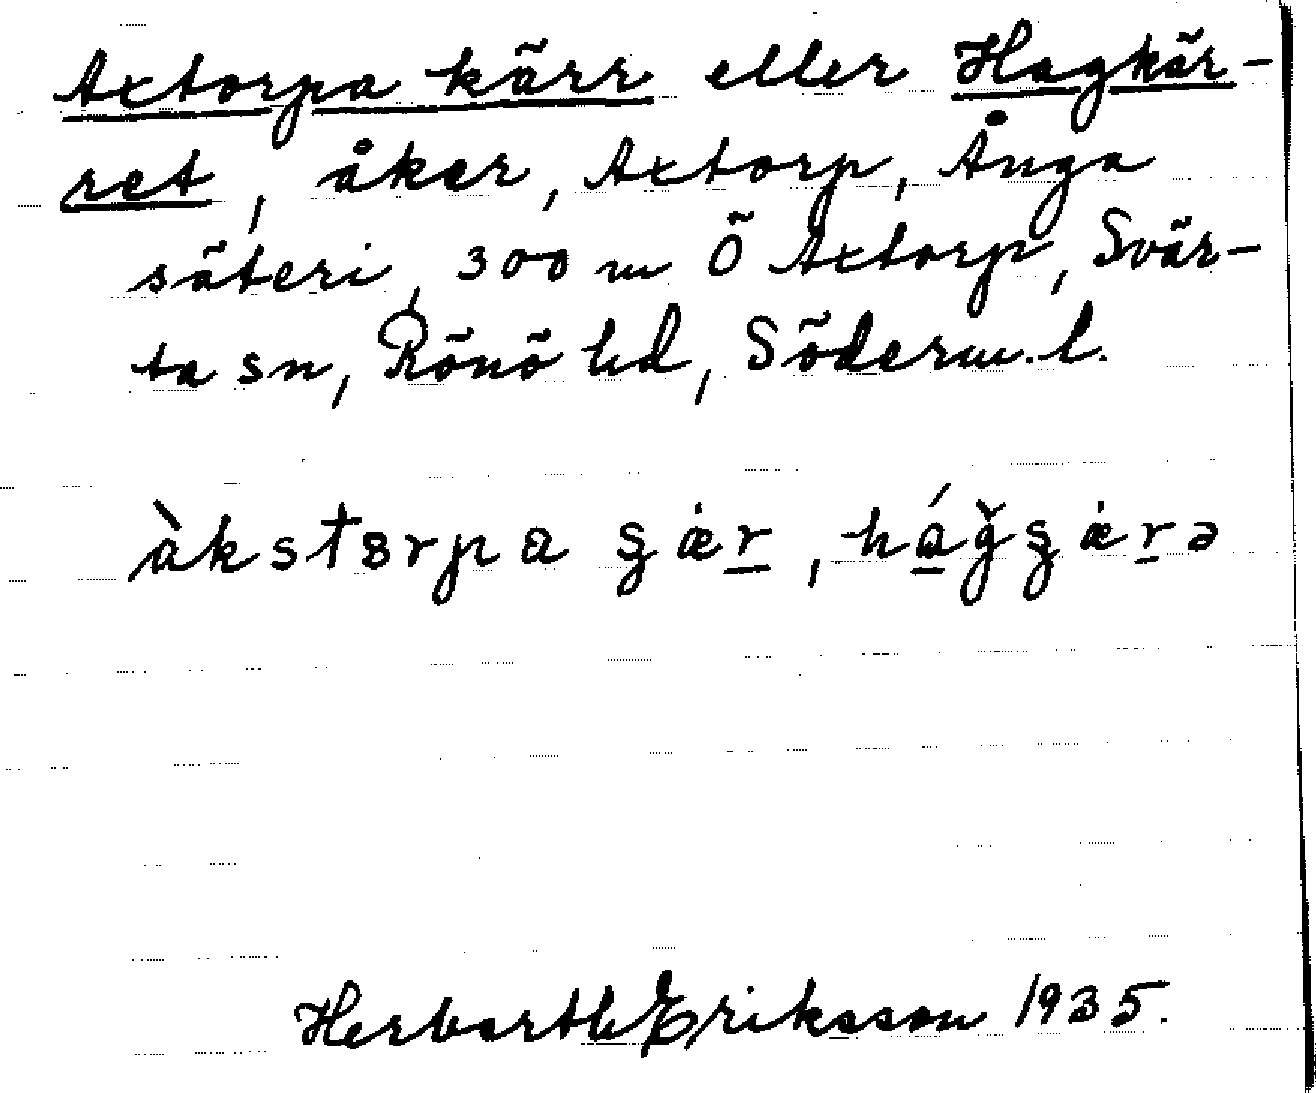 Axtorpa kärr eller Hagkär-
ret, åker, Axtorp, Ånga
säteri, 300 m Ö Axtorp, Svär-
ta sn, Rönö hd, Söderm. l.
àkstɞrpa ʂæ̇r̲, há̲ğʂæ̇r̲ə
Herbarth Eriksson 1935.